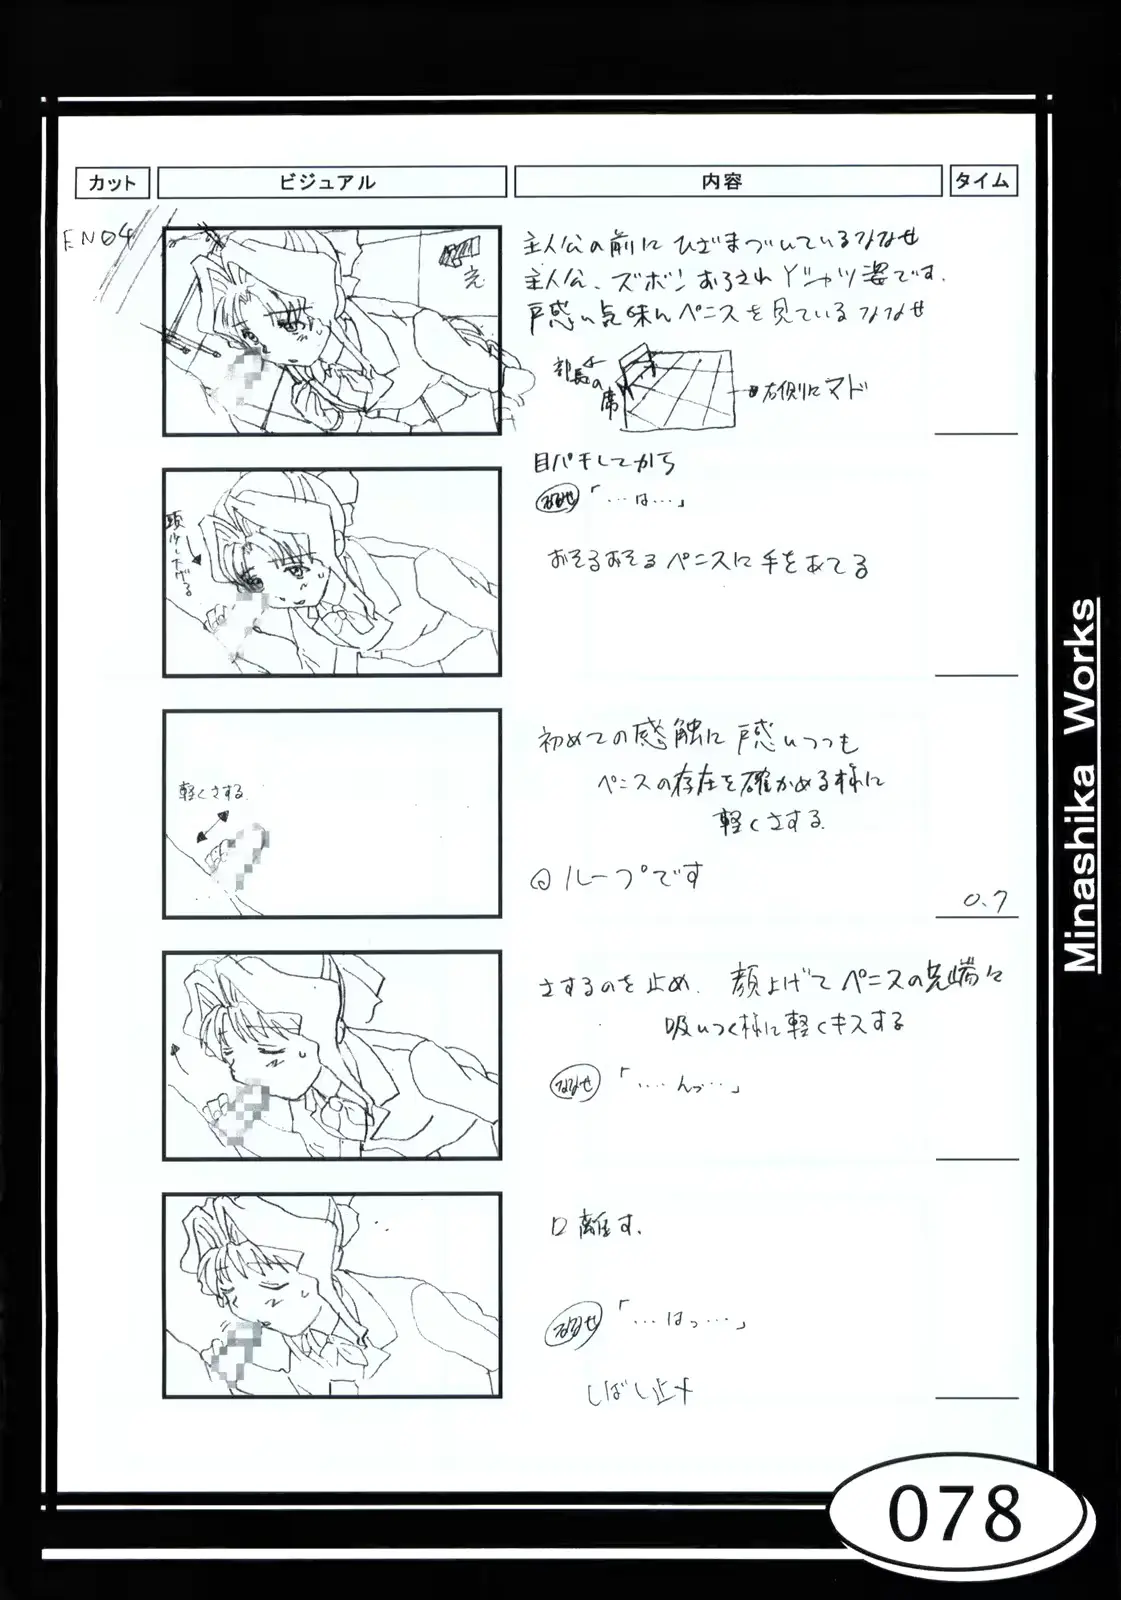 カット
ビジュアル
内容
タイム
EN04
え
主人公の前に ひざまづいているななせ
主人公、ズボンおろされYシャツ姿です.
戸惑い気味んペニスを見ているななせ
部長の席
右側にマド
目パチしてから
ななせ 「…は…」
頭少し下げる
おそるおそるペニスに手をあてる
初めての感触に戸惑いつつも
ペニスの存在を確かめる様に
軽くさする.
軽くさする
ループです
0.7
さするのを止め、顔上げてペニスの先端に
吸いつく様に軽くキスする
ななせ 「……んっ…」
口離す.
ななせ 「…はっ…」
しばし止メ
Minashika Works
078